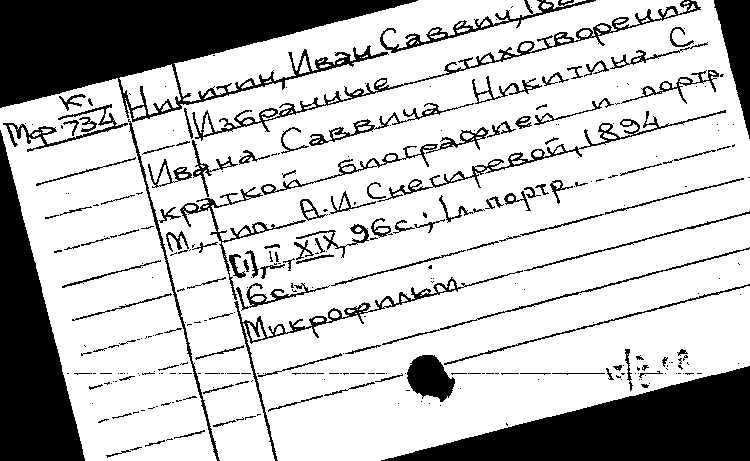 Мф К1/734
Никитин, Иван Саввич, 18
Избранные стихотворения
Ивана Саввича Никитина. С
краткой биографией и портр.
М., тип. А.И. Снегиревой, 1894
[1], II, XIX, 96с.; 1л. портр.
16см
Микрофильм.